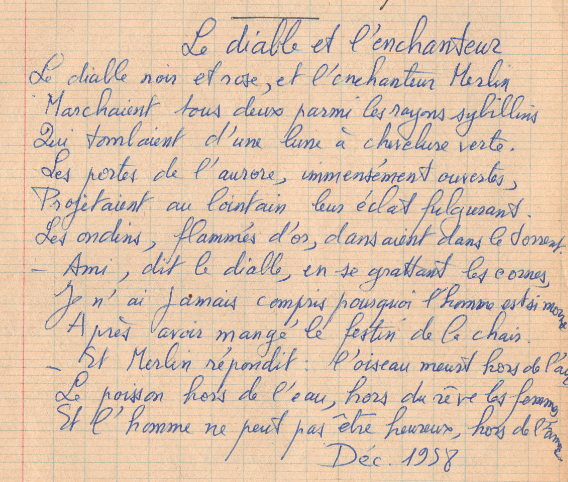 Le diable et l'enchanteur
Le diable noir et rose, et l'enchanteur Merlin
Marchaient tous deux parmi les rayons sybillins
Qui tombaient d'une lune à chevelure verte.
Les portes de l'aurore, immensément ouvertes,
Projetaient au lointain leur éclat fulgurant.
Les ondins, flammes d'or, dansaient dans le torrent.
- Ami, dit le diable, en se grattant les cornes,
Je n'ai jamais compris pourquoi l'homme est si morne
Après avoir mangé le festin de la chair.
- Et Merlin répondit : l'oiseau meurt hors de l'air
Le poisson hors de l'eau, hors du rêve les femmes
Et l'homme ne peut pas être heureux, hors de l'âme
Déc. 1958